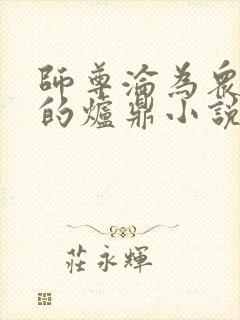 師尊淪為眾
的爐鼎小說
莊永輝